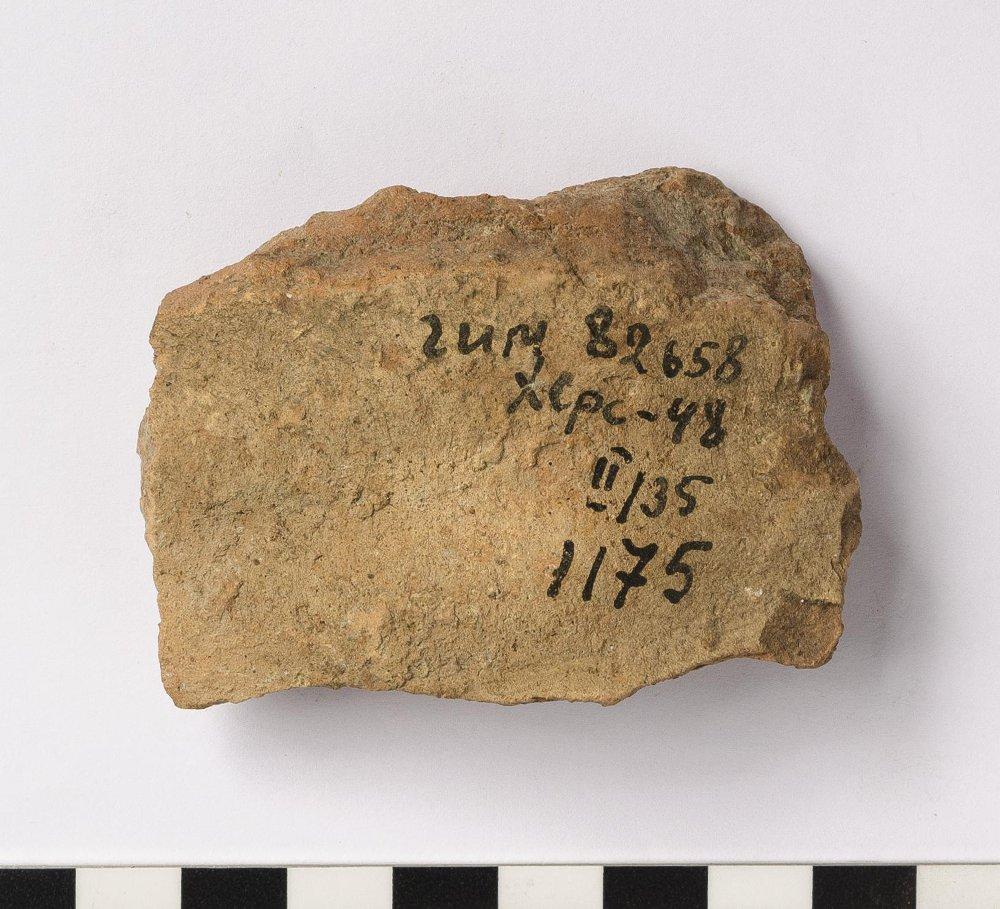 гим 82658
Херс-48
II/35
1175